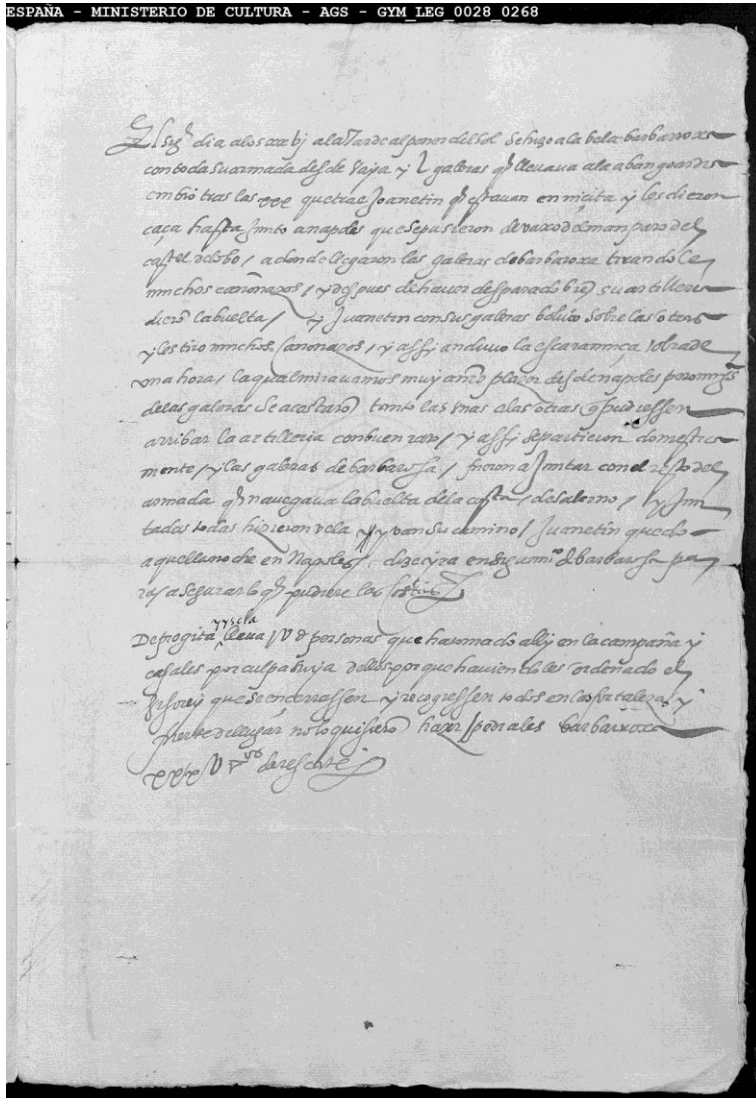 ESPAÑA - MINISTERIO DE CULTURA - AGS - GYM_LEG_0028_0268
El sigᵗᵉ dia a los xxvj a la tarde al poner del sol se hizo a la bela barbarroxa
con toda su armada desde Vaya y L galeras q̃ llevava a la abanguardia
embió tras las xxx que trae Joanetin q̃ estavan en nicita y les dieron
caça hasta Junto a napoles que se pusieron devaxo del manparo del
castel delobo / a donde llegaron las galeras de barbaroxa tirandole
muchos cañonazos / y despues de haver desparado bië su artilleria
dierõ la buelta / y Juanetin con sus galeras bolvio sobre las otras
y les tiro muchos Cañonazos / y assy anduvo la escaramuça sobra de
una hora / la qual miravamos muy a nr̃o plazer desde napoles pero nūqᵃ
de las galeras se acostarõ tanto las unas a las otras q̃ pudiessen
arribar la artilleria con buen rato / y assy se partieron domestica
mente / y las galeras de barbarossa / fueron a Juntar con el resto del
armada q̃ navegava la buelta de la costa / de salerno / y Jun
tadas todas hizieron vela y van su camino / Juanetin quedo
aquella noche en Napoles / dize yra en siguimiᵗᵒ d̃ barbarossa pa
ra / asegurar lo q̃ pudiere las Costas
De progita yyscla lleva / V d̃ personas que ha tomado ally en la campaña y
casales por culpa suya dellos porque haviendoles ordenado el
Visorey que se encerrassen y recogiessen todos en las fortalezas y
fuerte del lugar no lo quisierõ hazer / pediales barbarroxa
xxx V dᵘᵒˢ de rescate